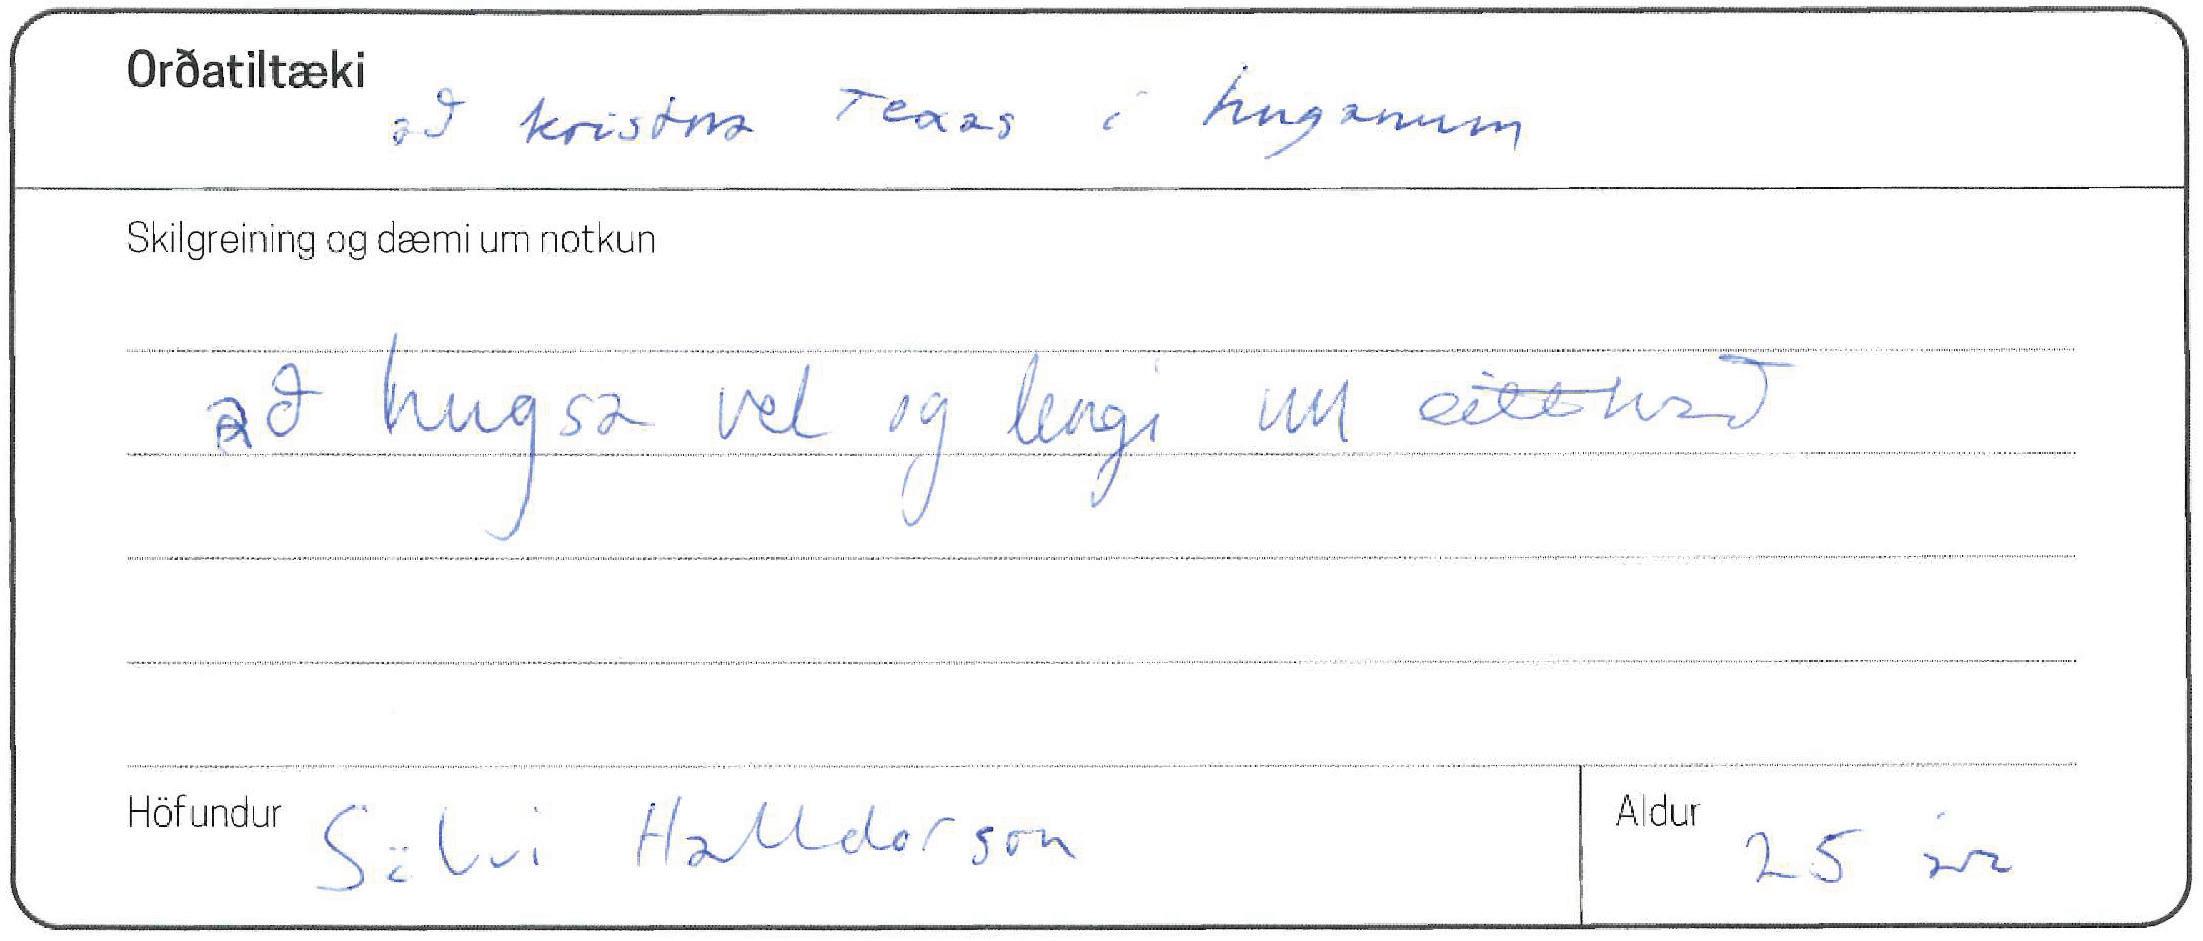 Orðatiltæki
að kristna Texas í huganum
Skilgreining og dæmi um notkun
að hugsa vel og lengi um eitthvað
Höfundur Sölvi Halldorsson
Aldur 25 ára